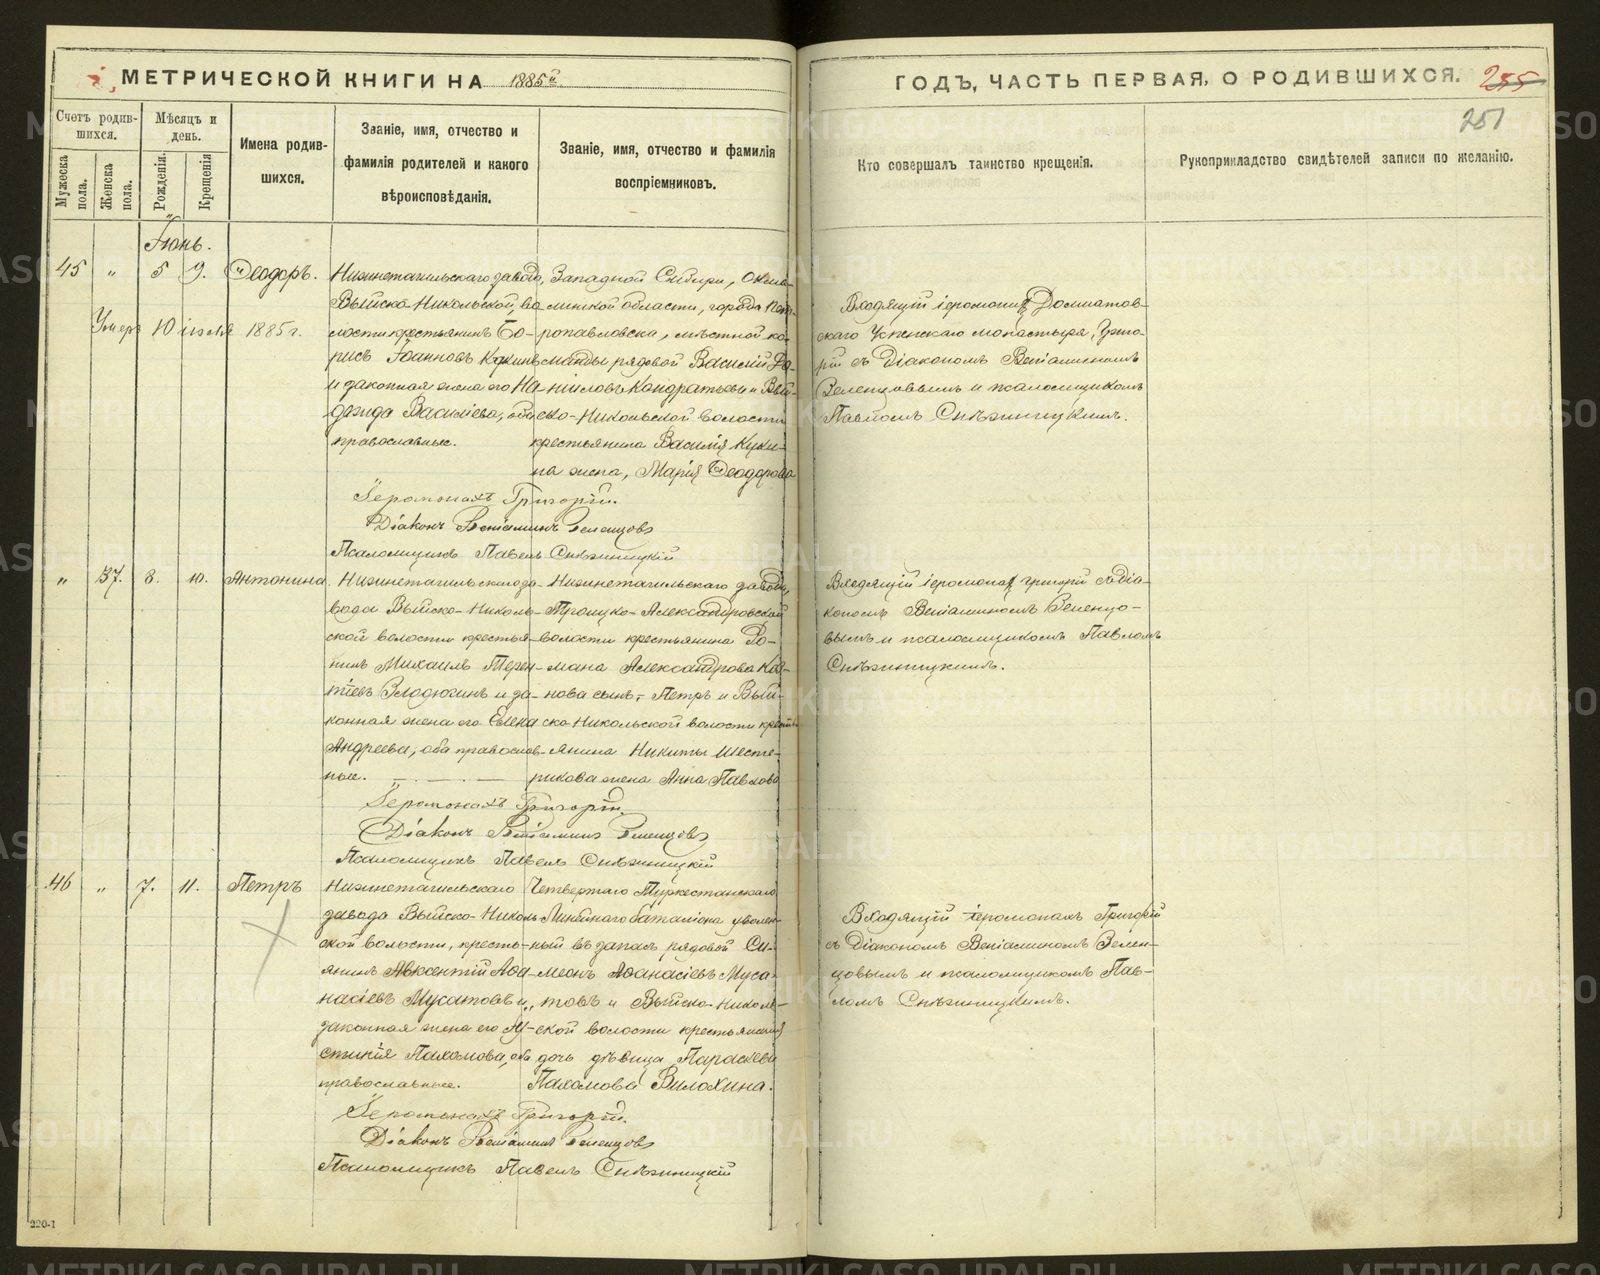 МЕТРИЧЕСКОЙ КНИГИ НА 1885й
ГОДЪ, ЧАСТЬ ПЕРВАЯ, О РОДИВШИХСЯ. 255
251
Счетъ родившихся.
Мужеска пола.
Женска пола.
Мѣсяцъ и день.
Рожденія.
Крещенія
Имена родившихся.
Званіе, имя, отчество и фамилія родителей и какого вѣроисповѣданія.
Званіе, имя, отчество и фамилія воспріемниковъ.
Кто совершалъ таинство крещенія.
Рукоприкладство свидѣтелей записи по желанію.
Іюнь.
45 " 5 9. Ѳеодоръ.
Умеръ 10 іюля 1885 г.
Нижнетагильскаго завода,
Выйско-Никольской во-
лости крестьянинъ Бо-
рисъ Іоанновъ Кукинъ
и законная жена его На-
дежда Васильева, оба
православные.
Западной Сибири, Акмо-
линской области, города Пет-
ропавловска, мѣстной ко-
манды рядовой Василій Да-
ніиловъ Кондратьевъ и Вый-
ско-Никольской волости
крестьянина Василія Куки-
на жена, Марія Ѳеодорова
Входящій іеромонахъ Долматов-
скаго Успенскаго монастыря, Григо-
рій съ Діакономъ Веніаминомъ
Зеленцовымъ и псаломщикомъ
Павломъ Снѣжницкимъ.
Іеромонахъ Григорій.
Діаконъ Веніаминъ Зеленцовъ
Псаломщикъ Павелъ Снѣжницкій
" 37. 8. 10. Антонина.
Нижнетагильскаго за-
вода Выйско-Николь-
ской волости крестья-
нинъ Михаилъ Терен-
тіевъ Злодюгинъ и за-
конная жена его Елена
Андреева, оба православ-
ные.
Нижнетагильскаго завода,
Троицко-Александровской
волости крестьянина Ро-
мана Александрова
нова сынъ, Петръ и Вый-
ско-Никольской волости кресть-
янина Никиты Шесте-
рикова жена Анна Павлова
Входящій іеромонахъ Григорій съ Діа-
кономъ Веніаминомъ Зеленцо-
вымъ и псаломщикомъ Павломъ
Снѣжницкимъ.
Іеромонахъ Григорій.
Діаконъ Веніаминъ Зеленцовъ
Псаломщикъ Павелъ Снѣжницкій
46 " 7. 11. Петръ
Нижнетагильскаго
завода Выйско-Николь-
ской волости, кресть-
янинъ Авксентій Аѳа-
насіевъ Мусатовъ и
законная жена его Іу-
стинія Пахомова, оба
православные.
Четвертаго Туркестанскаго
Линейнаго баталіона уволен-
ный въ запасъ рядовой Си-
меонъ Аѳанасіевъ Муса-
товъ и Выйско-Николь-
ской волости крестьянина
дочь дѣвица Параскева
Пахомова Вилохина.
Входящій іеромонахъ Григорій
съ Діакономъ Веніаминомъ Зелен-
цовымъ и псаломщикомъ Пав-
ломъ Снѣжницкимъ.
Іеромонахъ Григорій.
Діаконъ Веніаминъ Зеленцовъ
Псаломщикъ Павелъ Снѣжницкій
220-1
METRIKI.GASO-URAL.RU